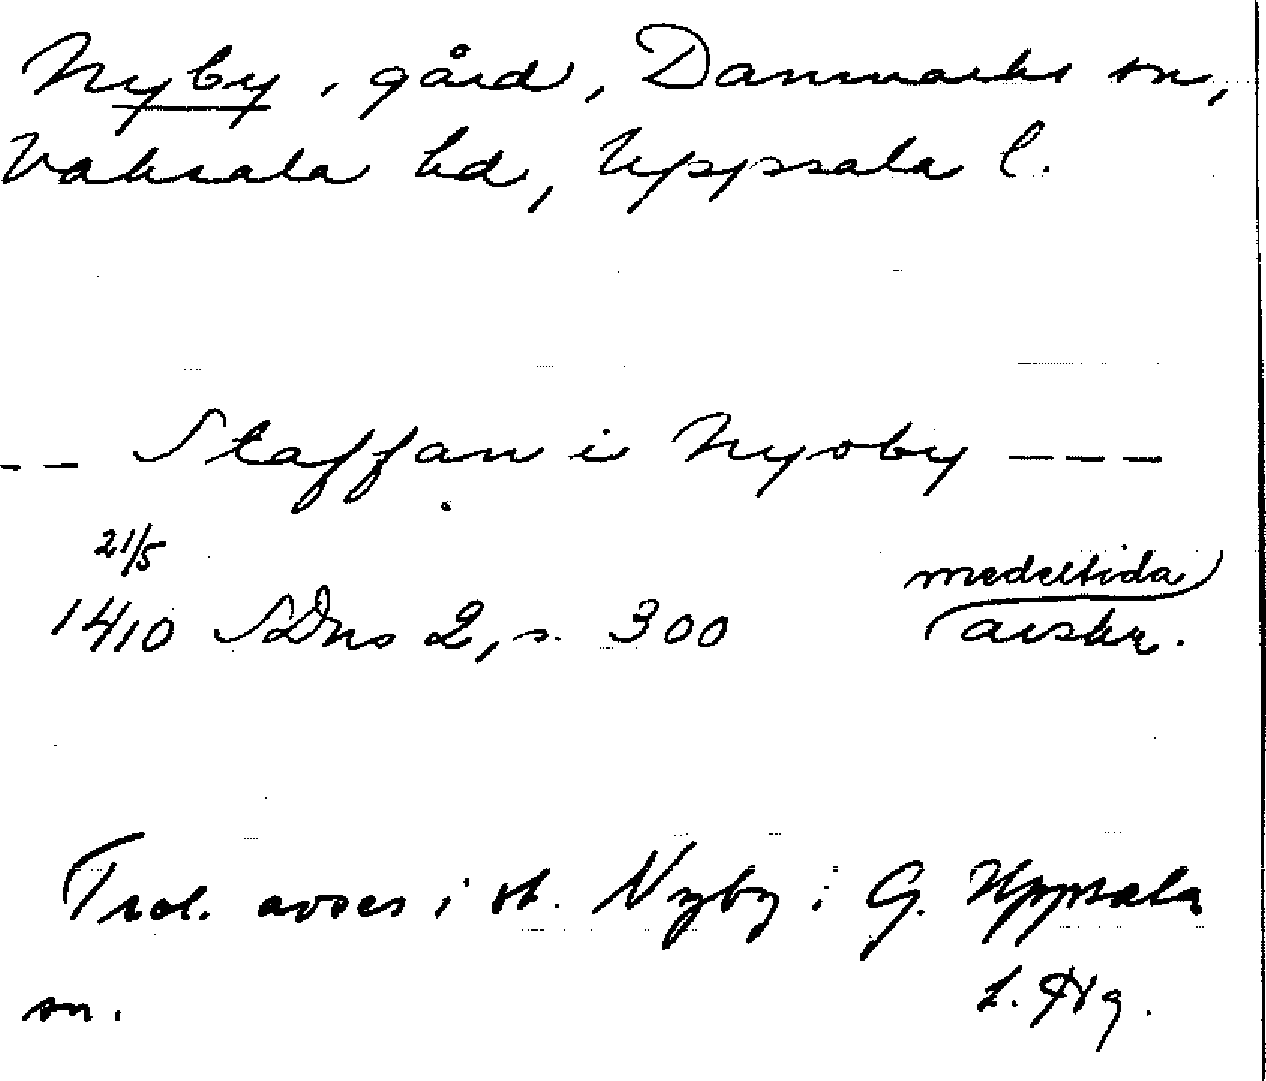 Nyby, gård, Danmarks sn,
Vaksala hd, Uppsala l.
-- Staffan i Nyoby ---
21/5
1410 SDns 2, s. 300 medeltida
avskr.
Trol. avses i st. Nyby i G. Uppsala
sn. L. Hg.